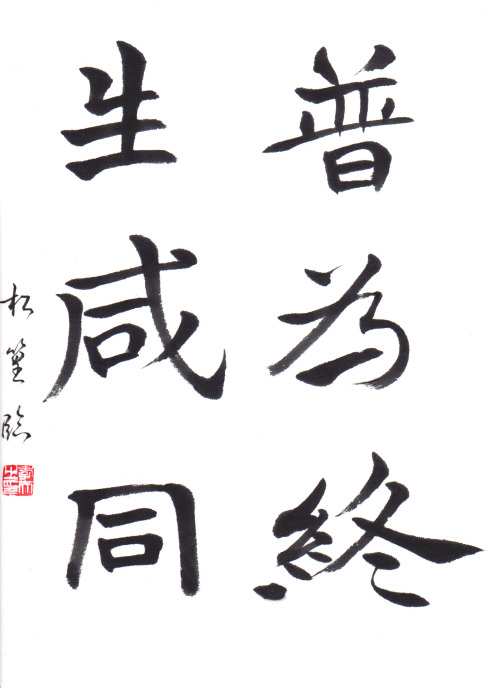 普為終
生咸同
松篁臨